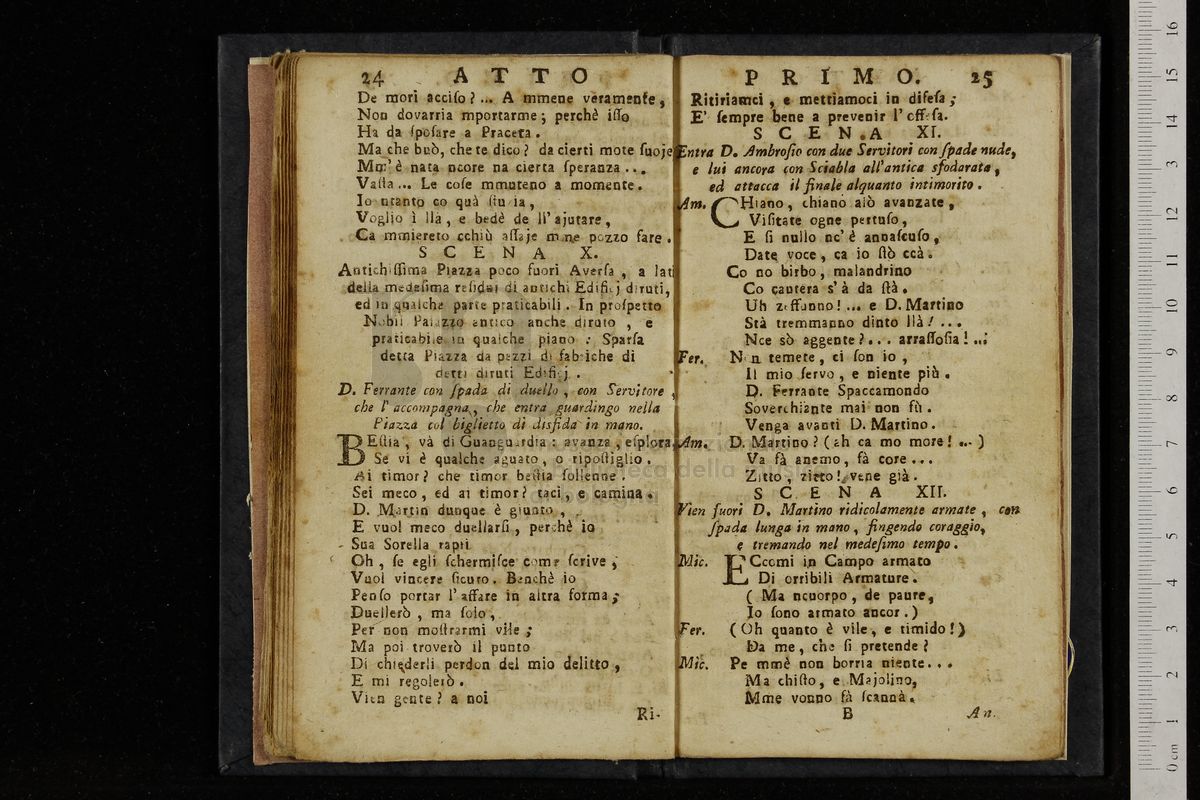 24 ATTO
De mori acciſo?... A mmene veramente,
Non dovarria mportarme; perchè iſſo
Ha da ſpoſare a Praceta.
Ma che buò, che te dico? da cierti mote ſuoje
Mm' è nata ncore na cierta ſperanza...
Vaſta... Le coſe mmuteno a momente.
Io ntanto co quà ſtu ia,
Voglio ì llà, e bedè de ll' ajutare,
Ca mmiereto cchiù aſſaje mme pozzo fare.
SCENA X.
Antichiſſima Piazza poco fuori Averſa, a lati
della medeſima reſidui di antichi Edifizj diruti,
ed in qualche parte praticabili. In proſpetto
Nobil Palazzo antico anche diruto, e
praticabile in qualche piano: Sparſa
detta Piazza da pezzi di fabriche di
detti diruti Edifizj.
D. Ferrante con ſpada di duello, con Servitore,
che l' accompagna, che entra guardingo nella
Piazza col biglietto di disfida in mano.
BEſtia, và di Guanguardia: avanza, eſplora.
Se vi è qualche aguato, o ripoſtiglio.
Ai timor? che timor beſtia ſollenne.
Sei meco, ed ai timor? taci, e camina.
D. Martin dunque è giunto,
E vuol meco duellarſi, perchè io
Sua Sorella rapti
Oh, ſe egli ſchermiſce come ſcrive;
Vuol vincere ſicuro. Benchè io
Penſo portar l' affare in altra forma;
Duellerò, ma ſolo,
Per non moſtrarmi vile;
Ma poi troverò il punto
Di chiederli perdon del mio delitto,
E mi regolerò.
Vien gente? a noi
Ri-
PRIMO. 25
Ritiriamci, e mettiamoci in difeſa;
E' ſempre bene a prevenir l' offeſa.
SCENA XI.
Entra D. Ambroſio con due Servitori con ſpade nude,
e lui ancora con Sciabla all' antica sfodarata,
ed attacca il finale alquanto intimorito.
Am. CHiano, chiano alò avanzate,
Viſitate ogne pertuſo,
E ſi nullo nc' è annaſcuſo,
Date voce, ca io ſtò ccà.
Co no birbo, malandrino
Co cautera s' à da ſtà.
Uh zeffunno!... e D. Martino
Stà tremmanno dinto llà!...
Nce sò aggente?... arraſſoſia!...
Fer. Non temete, ci ſon io,
Il mio ſervo, e niente più.
D. Ferrante Spaccamondo
Soverchiante mai non fù.
Venga avanti D. Martino.
Am. D. Martino? (ah ca mo more!...)
Va fà anemo, fà core...
Zitto, zitto! vene già.
SCENA XII.
Vien fuori D. Martino ridicolamente armate, con
ſpada lunga in mano, fingendo coraggio,
e tremando nel medeſimo tempo.
Mic. ECcomi in Campo armato
Di orribili Armature.
(Ma ncuorpo, de paure,
Io ſono armato ancor.)
Fer. (Oh quanto è vile, e timido!)
Da me, che ſi pretende?
Mic. Pe mmè non borria niente...
Ma chiſto, e Majolino,
Mme vonno fà ſcannà.
B An.